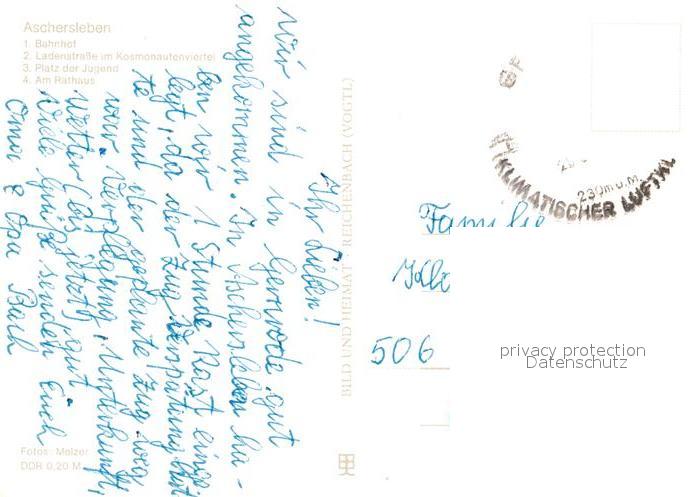 Aschersleben
1. Bahnhof
2. Ladenstraße im Kosmonautenviertel
3. Platz der Jugend
4. Am Rathaus
Ihr Lieben!
Wir sind in Gernrode gut
angekommen. In Aschersleben ha-
ben wir 1 Stunde Rast einge-
legt, da der Zug Verspätung hat-
te und der geplante Zug weg
war. Verpflegung, Unterkunft,
Wetter (bis jetzt) gut
Viele Grüße senden Euch
Oma & Opa
Fotos: Melzer
DDR 0,20 M
BILD UND HEIMAT REICHENBACH (VOGTL)
230m ü.M.
KLIMATISCHER LUFTKU
Familie
506
privacy protection
Datenschutz